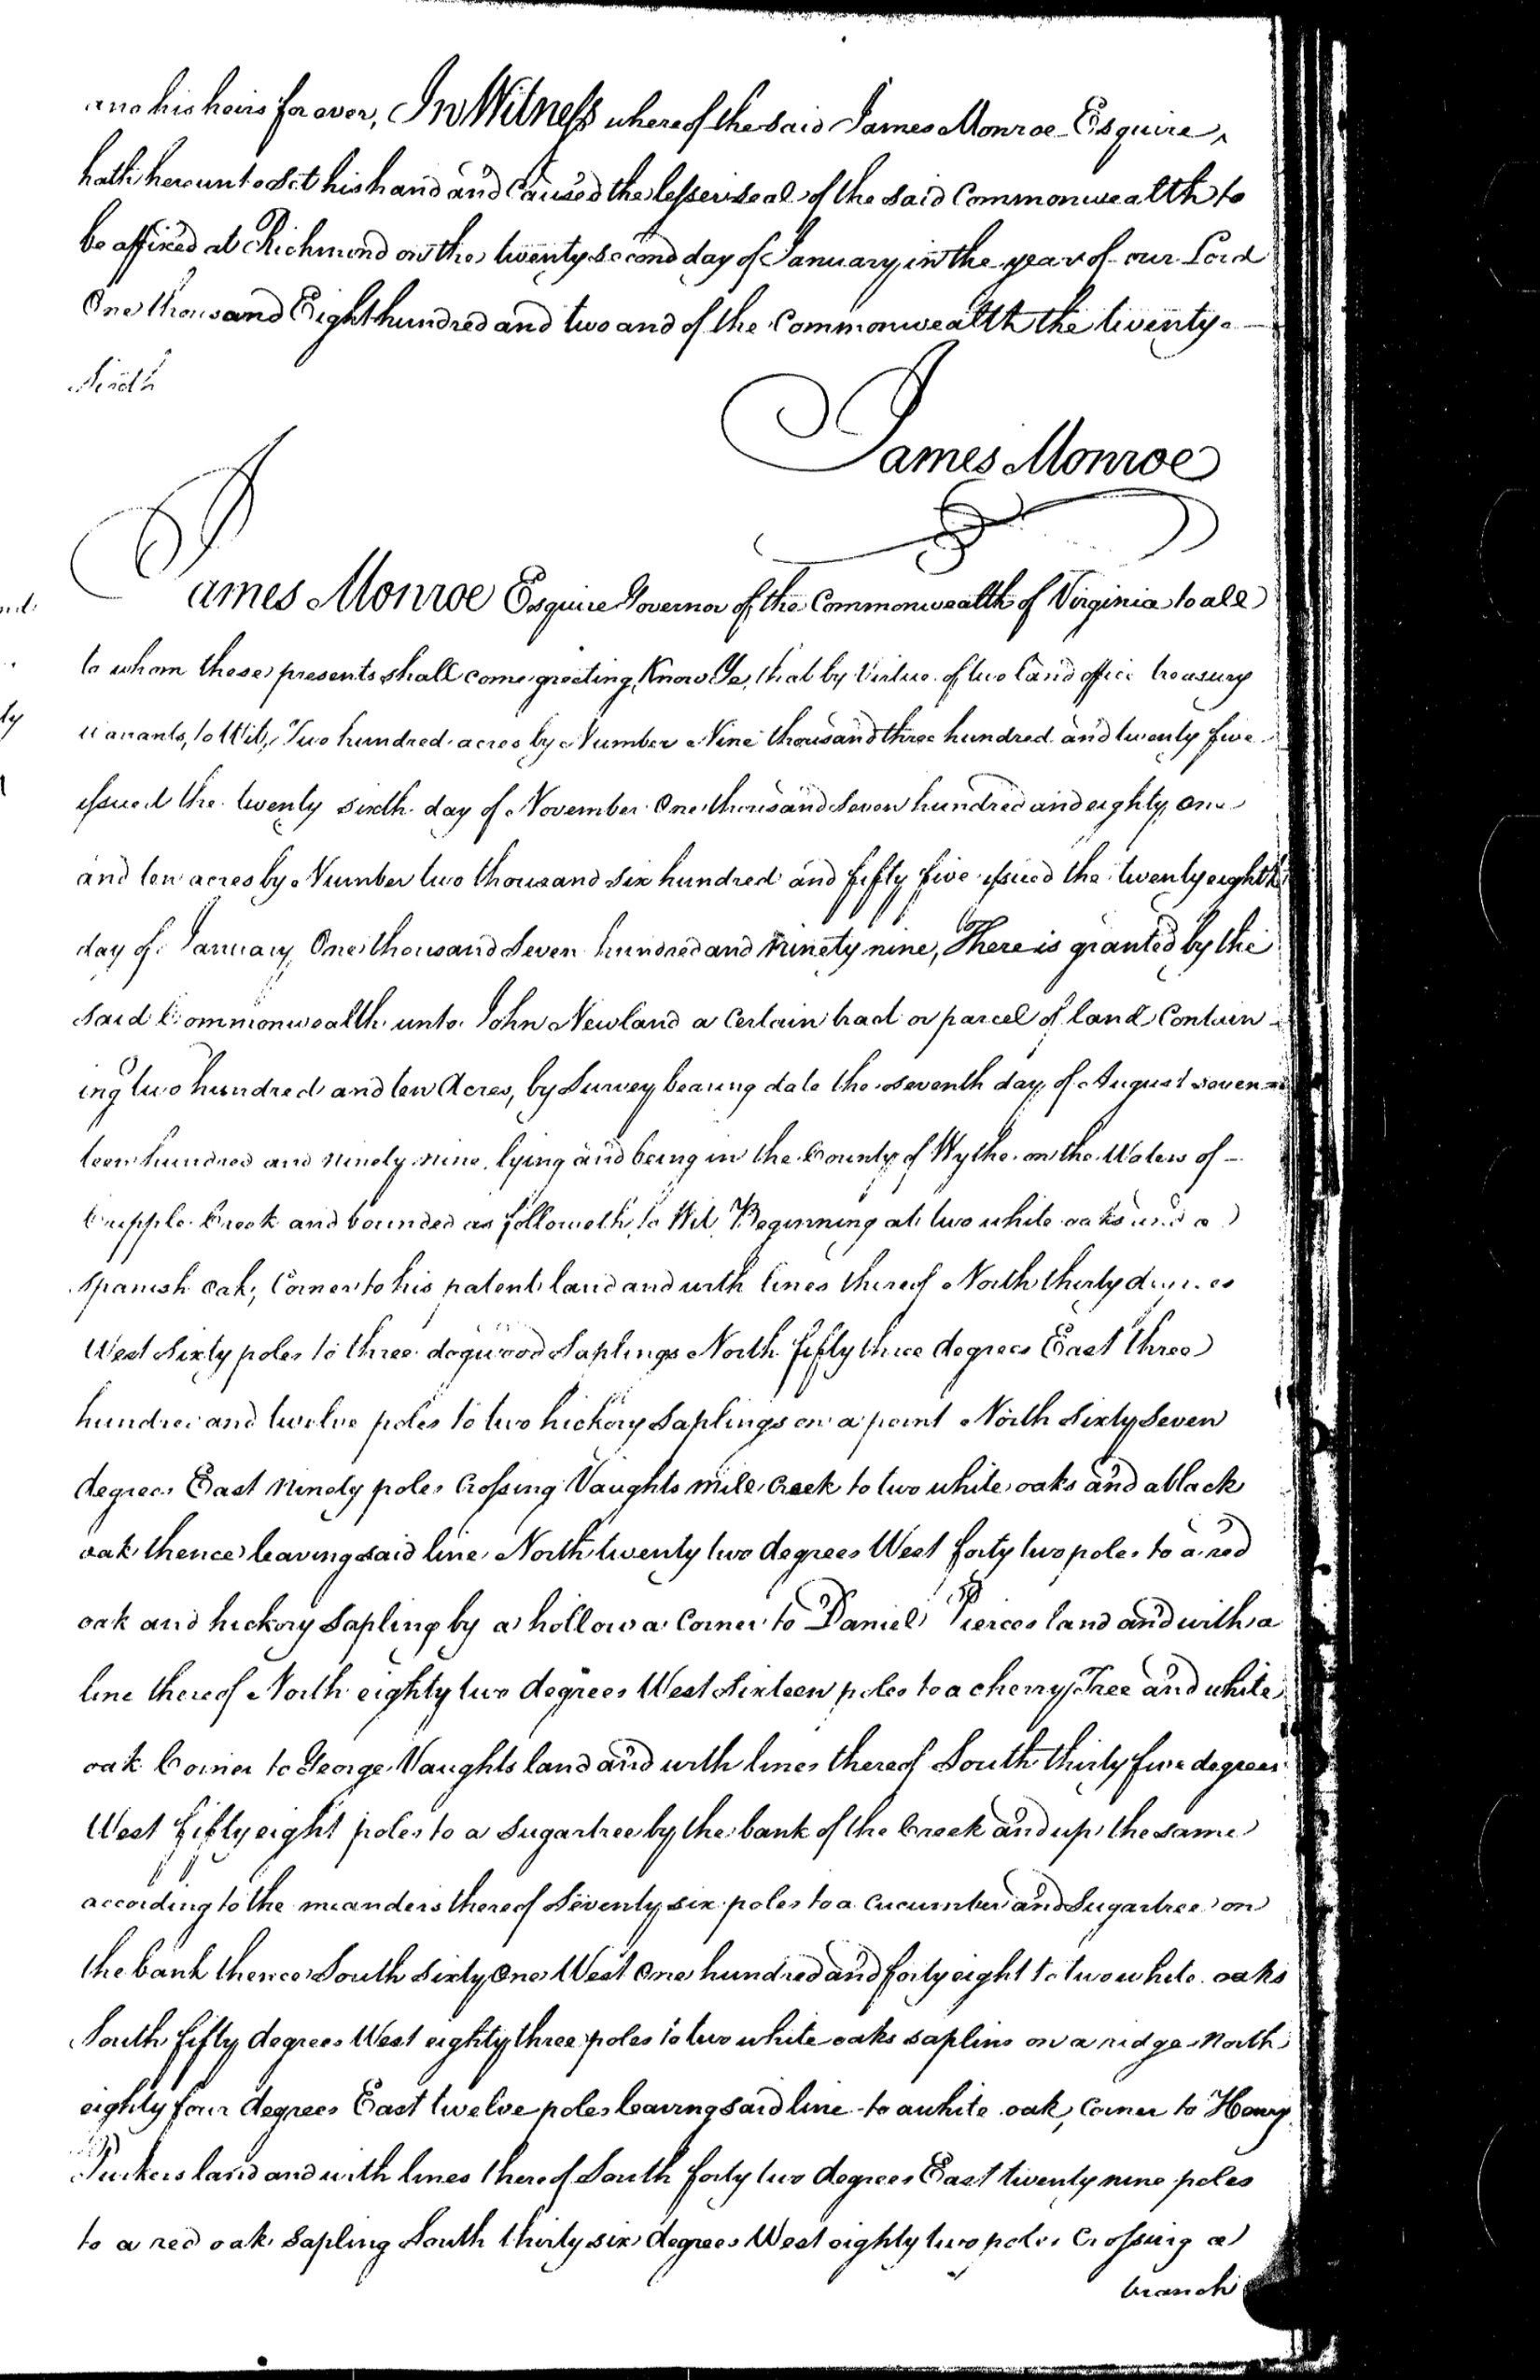 and his heirs forever, In Witness whereof the said James Monroe Esquire,
hath hereunto Set his hand and Caused the lesser seal of the Said Commonwealth to
be affixed at Richmond on the twenty Second day of January in the year of our Lord
One thousand Eight hundred and two and of the Commonwealth the twenty-
Sixth
James Monroe
James Monroe Esquire Governor of the Commonwealth of Virginia to all
to whom these presents shall come greeting, Know Ye, that by Virtue of two land office treasury
warrants, to Wit, Two hundred acres by Number Nine thousand three hundred and twenty five
issued the twenty sixth day of November One thousand Seven hundred and eighty one
and ten acres by Number two thousand Six hundred and fifty five issued the twenty eighth
day of January One thousand Seven hundred and Ninety nine, There is granted by the
Said Commonwealth unto John Newland a Certain tract or parcel of land Contain-
ing two hundred and ten Acres, by Survey bearing date the seventh day of August seven-
teen hundred and ninety nine, lying and being in the County of Wythe on the Waters of
Cripple Creek and bounded as followeth, to Wit, Beginning at two white oaks and a
Spanish oak, Corner to his patent land and with lines thereof North thirty degrees
West Sixty poles to three dogwood Saplings North fifty three degrees East three
hundred and twelve poles to two hickory Saplings on a point North Sixty Seven
degrees East Ninety poles Crossing Vaughts mile Creek to two white oaks and a black
oak thence leaving said line North twenty two degrees West forty two poles to a red
oak and hickory Sapling by a hollow a Corner to Daniel Pierces land and with a
line thereof North eighty two degrees West Sixteen poles to a cherry Tree and white
oak Corner to George Vaughts land and with lines thereof South thirty five degrees
West fifty eight poles to a Sugartree by the bank of the Creek and up the same
according to the meanders thereof Seventy six poles to a Cucumber and Sugartree on
the bank thence South Sixty One West One hundred and forty eight to two white oaks
South fifty degrees West eighty three poles to two white oaks saplins on a ridge North
eighty four degrees East twelve poles leaving Said line to a white oak, Corner to Henry
Tuckers land and with lines thereof South forty two degrees East twenty nine poles
to a red oak Sapling South thirty six degrees West eighty two poles Crossing a
branch